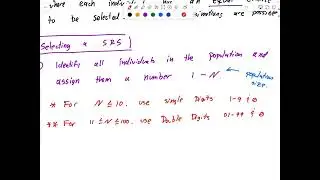 where each indiv has an equal chance
to be selected . are possible
Selecting a SRS
1) Identify all individuals in the population and
assign them a number 1 - N
population size.
* For N ≤ 10, use single Digits 1-9 & 0
** For 11 ≤ N ≤ 100, use Double Digits 01-99 &